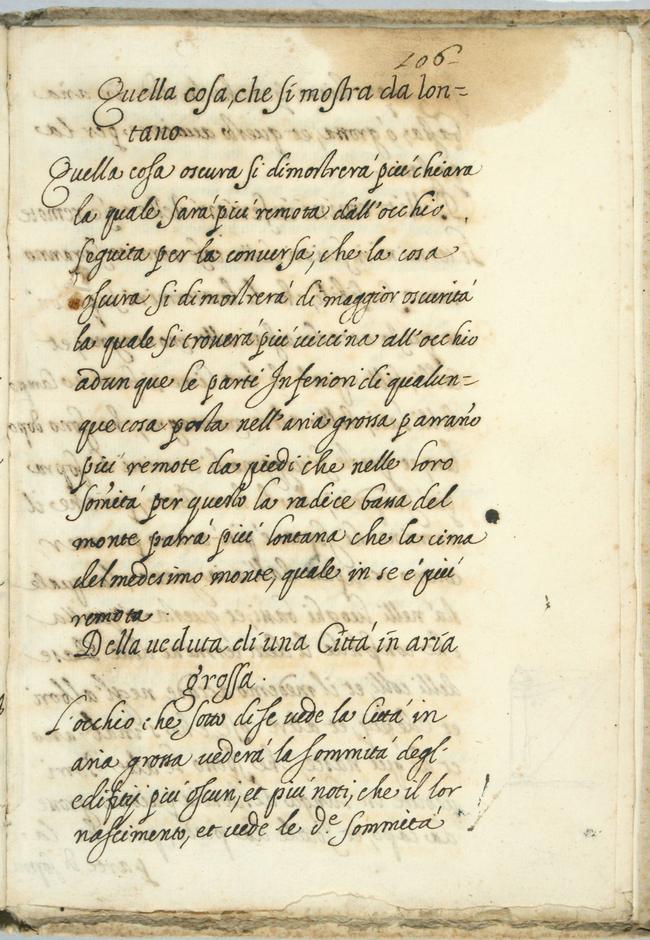 106
Quella cosa, che si mostra da lon=
tano
Quella cosa oscura si dimostrerá piú chiara
la quale sará piú remota dall'occhio.
seguita per la conversa, che la cosa
oscura si dimostrerá di maggior oscuritá
la quale si troverá piú viccina all'occhio
adunque le parti Inferiori di qualun=
que cosa posta nell'aria grossa parrano
piú remote da piedi che nelle loro
somitá per questo la radice bassa del
monte parrá piú lontana che la cima
del medesimo monte, quale in se é piú
remota.
Della veduta di una Cittá in aria
grossa.
L'occhio che sotto di se vede la Cittá in
aria grossa vederá la sommitá degl'
edifitij piú oscuri, et piú noti, che il lor
nascimento, et vede le d.e sommitá